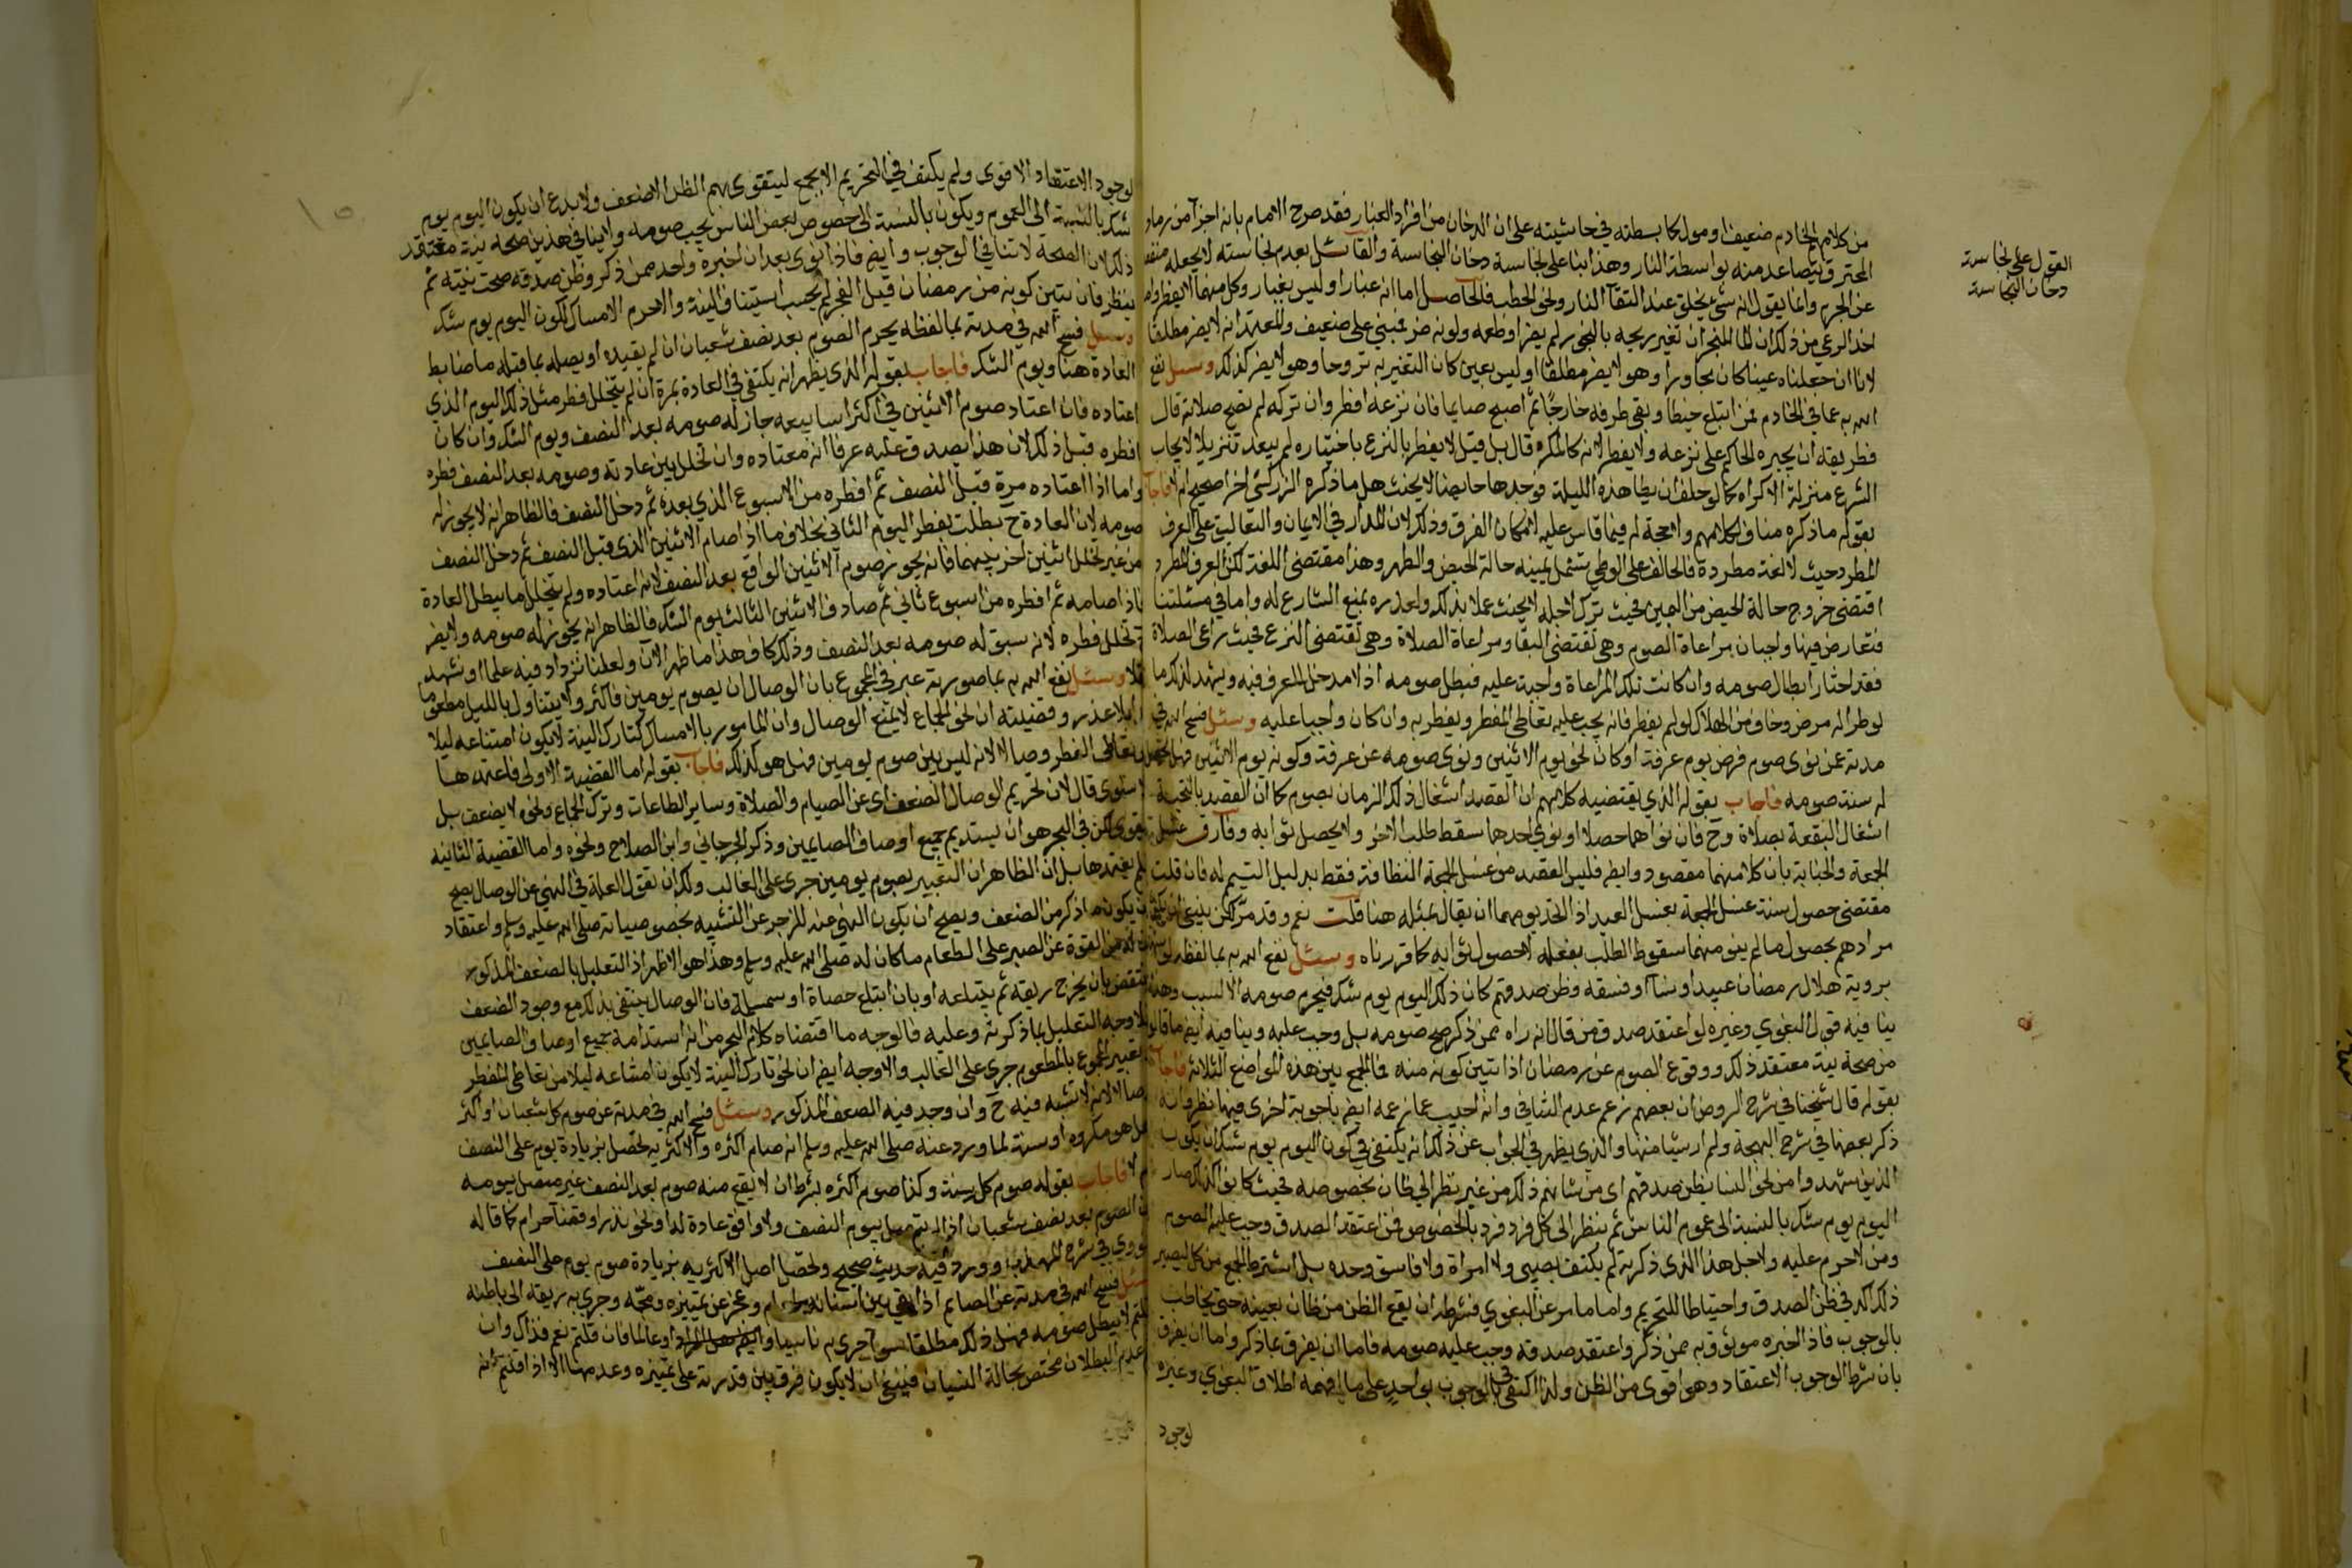 من كلامهم الخادم ضعيف او مول كما بسطته في حاشيته على ان الدخان من افراد الغبار فقد صرح الامام بانه اجزآ من رماد
المحترق يتصاعد منه بواسطة النار وهذا بنا على نجاسة دخان النجاسة والقائل بعدم نجاسته لا يجعله
عن الجرم وانما يقول انه شئ يخلق عند التقآ النار ونحو الحطب فالحاصل اما انه غبار او ليس بغبار وكل منهما لا يفطر
اخذ الرعي من ذلك ان الماء المبخر ان تغير ريحه بالبخور لم يضر او طعمه ولونه ضر فمبني على ضعيف والمعتمد انه لا يضر مطلقا
لانا ان جعلناه عينا كان مجاورا وهو لا يضر مطلقا او ليس بعين كان التغير به تروحا وهو لا يضر كذلك وسئل نفع
الله به عما في الخادم فمن ابتلع خيطا وبقي طرفه خارجا ثم اصبح صايما فان نزعه افطر وان تركه لم تصح صلاته قال
فطريقه ان يجبره الحاكم على نزعه ولا يفطر لانه كالمكره قال بل قيل لا يفطر بالنزع باختياره لم يبعد تنزيلا لايجاب
الشرع منزلة الاكراه كما لو حلف ان يطا هذه الليلة فوجدها حايضا لا يحنث هل ما ذكره الزركشي اخرا صحيح ام لا فاجاب
بقوله ما ذكره مناف لكلامهم ولا حجة له فيما قاس عليه لامكان الفرق وذلك لان المدار في الايمان والتعاليق على العرف
المطرد حيث لا لغة مطردة فالحالف على الوطي تشمل يمينه حالة الحيض والطهر وهذا مقتضى اللغة لكن العرف المطرد
اقتضى خروج حالة الحيض من اليمين فحيث ترك لاجله لا يحنث عملا بذلك ولعذره بمنع الشارع له واما في مسئلتنا
فتعارض فيها واجبان مراعاة الصوم وهي تقتضي البقا ومراعاة الصلاة وهي تقتضي النزع فحيث راعى الصلاة
فقد اختار ابطال صومه وان كانت تلك المراعاة واجبة عليه فبطل صومه اذ لا مدخل للعرف فيه ويشهد لذلك ما
لو طرا له مرض وخاف من الهلاك لو لم يفطر فانه يجب عليه تعاطي المفطر ويفطر به وان كان واجبا عليه وسئل فسح الله في
مدته عمن نوى صوم فرض يوم عرفة او كان نحو يوم الاثنين ونوى صومه عن عرفة وكونه يوم الاثنين فهل
له سنة صومه فاجاب بقوله الذي يقتضيه كلامهم ان القصد اشغال ذلك الزمان بصوم كما ان القصد بالتحية
اشغال البقعة بصلاة وح فان نواهما حصلا او نوى احدهما سقط طلب الاخر ولا يحصل ثوابه وفارق غسل
الجمعة والجنابة بان كلا منهما مقصود وايضا فليس القصد من غسل الجمعة النظافة فقط بدليل التيمم له فان قلت
مقتضى حصول سنة غسل الجمعة بغسل العيد اذا اتحد يومهما ان يقال بمثله هنا قلت نعم وقد مر لكن ينبغي ان يكون
مرادهم بحصول ما لم ينو منهما سقوط الطلب بفعله لا حصول ثوابه كما قررناه وسئل نفع الله به بما لفظه لو
بروية هلال رمضان عبيد او نسآ او فسقة وظن صدقهم كان ذلك اليوم يوم شك فيحرم صومه الا لسبب وهذا
ينافيه قول البغوي وغيره لو اعتقد صدق من قال انه راه ممن ذكر صح صومه بل وجب عليه وينافيه ايضا ما قالوه
من صحة نية معتقد ذلك ووقوع الصوم عن رمضان اذا تبين كونه منه فما الجمع بين هذه المواضع الثلاثة فاجاب
بقوله قال شيخنا في شرح الروض ان بعضهم زعم عدم التنافي وانه اجيب عما زعمه ايضا باجوبة اخرى فيها نظر وانه
ذكر بعضها في شرح البهجة ولم ار شيئا منها والذي يظهر في الجواب عن ذلك انه يكتفى في كون اليوم يوم شك ان يكون
الذين شهدوا من نحو النسا يظن صدقهم اي من شانهم ذلك من غير نظر الى ظان بخصوصه فحيث كانوا كذلك صار
اليوم يوم شك بالنسبة الى عموم الناس ثم ينظر الى كل فرد فرد بالخصوص فمن اعتقد الصدق وجب عليه الصوم
ومن لا حرم عليه ولاجل هذا الذي ذكرته لم يكتف بصبي ولا امراة ولا فاسق وحده بل اشترط الجمع من كل ليصير
ذلك اكد في ظن الصدق واحتياطا للتحريم واما ما مر عن البغوي فشرطه ان يقع الظن من ظان بعينه حتى يخاطب
بالوجوب فاذا اخبره موثوق به ممن ذكر واعتقد صدقه وجب عليه صومه فاما ان يفرق بما ذكر واما ان يفرق
بان شرط الوجوب الاعتقاد وهو اقوى من الظن ولذا اكتفى في الوجوب بواحد على ما افهمه اطلاق البغوي وغيره
لوجود
القول على نجاسة
دخان النجاسة
لوجود الاعتقاد الاقوى ولم يكتف في التحريم الا بجمع ليتقوى بهم الظن الاضعف ولا بدع ان يكون اليوم يوم
شك بالنسبة الى العموم ويكون بالنسبة الى خصوص بعض الناس يجب صومه ولا ينافي هذين صحة نية معتقد
ذلك لان الصحة لا تنافي الوجوب وايضا فاذا نوى بعد ان اخبره واحد ممن ذكر وظن صدقه صحت نيته ثم
ينظر فان تبين كونه من رمضان قبل الفجر لم يجب استيناف النية والا حرم الامساك لكون اليوم يوم شك
وسئل فسح الله في مدته بما لفظه يحرم الصوم بعد نصف شعبان ان لم يقيده او يصله بما قبله ما ضابط
العادة هنا ويوم الشك فاجاب بقوله الذي يظهر انه يكتفى في العادة بمرة ان لم يتخلل فطر مثل ذلك اليوم الذي
اعتاده فان اعتاد صوم الاثنين في اكثر اسابيعه جاز له صومه بعد النصف ويوم الشك وان كان
افطره قبل ذلك لان هذا يصدق عليه عرفا انه معتاده وان تخلل بين عادته وصومه بعد النصف فطره
واما اذا اعتاده مرة قبل النصف ثم افطره من الاسبوع الذي بعده ثم دخل النصف فالظاهر انه لا يجوز له
صومه لان العادة ح بطلت بفطر اليوم الثاني بخلاف ما اذا صام الاثنين الذي قبل النصف ثم دخل النصف
من غير تخلل اثنين اخر بينهما فانه يجوز صوم الاثنين الواقع بعد النصف لانه اعتاده ولم يتخلل ما يبطل العادة
فاذا صامه ثم افطره من اسبوع ثاني ثم صادف الاثنين الثالث يوم الشك فالظاهر انه يجوز له صومه ولا يضر
تخلل فطره لانه سبق له صومه بعد النصف وذلك كاف هذا ما ظهر الآن ولعلنا نزداد فيه علما او نشهد
نقلا وسئل نفع الله به بما صورته عبر في المجموع بان الوصال ان يصوم يومين فاكثر ولا يتناول بالليل مطعوما
بلا عذر وقضيته ان نحو الجماع لا يمنع الوصال وان المامور بالامساك كتارك النية لا يكون امتناعه ليلا
من تعاطي المفطر وصالا لانه ليس بين صوم يومين فهل هو كذلك فاجاب بقوله اما القضية الاولى فاعتمدها
الاسنوي قال لان تحريم الوصال للضعف اي عن الصيام والصلاة وساير الطاعات وترك الجماع ونحوه لا يضعف بل
يقوي لكن في البحر هو ان يستديم جميع اوصاف الصايمين وذكر الجرجاني وابن الصلاح نحوه واما القضية الثانية
فلم يعتمدها بل ان الظاهر ان التعبير بصوم يومين جرى على الغالب ولك ان تقول العلة في النهي عن الوصال يصح
ان يكون ما ذكر من الضعف ويصح ان يكون النهي عنه للزجر عن التشبيه بخصوصياته صلى الله عليه وسلم واعتقاد
ان له من القوة عن الصبر على الطعام ما كان له صلى الله عليه وسلم وهذا هو الاظهر اذ التعليل بالضعف المذكور
ينتقض بان يخرج ريقه ثم يبتلعه او بان ابتلع حصاة او سمسمة فان الوصال ينتفي بذلك مع وجود الضعف
فالاوجه التعليل بما ذكرته وعليه فالوجه ما اقتضاه كلام البحر من انه استدامة جميع اوصاف الصايمين
وتعبير المجموع بالمطعوم جرى على الغالب والاوجه ايضا ان نحو تارك النية لا يكون امتناعه ليلا من تعاطي المفطر
وصالا لانه لا تشبه فيه ح وان وجد فيه الضعف المذكور وسئل فسح الله في مدته عن صوم كل شعبان او اكثره
هل هو مكروه او سنة لما ورد عنه صلى الله عليه وسلم انه صام اكثره والاكثرية تحصل بزيادة يوم على النصف
ام لا فاجاب بقوله صوم كل سنة وكذا صوم اكثره بشرط ان لا يقع منه صوم بعد النصف غير متصل بيومه
لان الصوم بعد نصف شعبان اذا لم يتصل بيوم النصف ولا وافق عادة له او نحو نذر او قضا حرام كما قاله
النووي في شرح المهذب وورد فيه حديث صحيح وتحصل اصل الاكثرية بزيادة صوم يوم على النصف
وسئل فسح الله في مدته عن الصائم اذا بقي بين اسنانه طعام وعجز عن تمييزه ومجه وجرى به ريقه الى باطنه
قلتم لا يبطل صومه فهل ذلك مطلقا سوآ جرى به ناسيا او عالما فان قلتم نعم فذاك وان
عدم البطلان مختص بحالة النسيان فينبغي ان لا يكون فرق بين قدرته على تمييزه وعدمها الا اذا قلتم انه